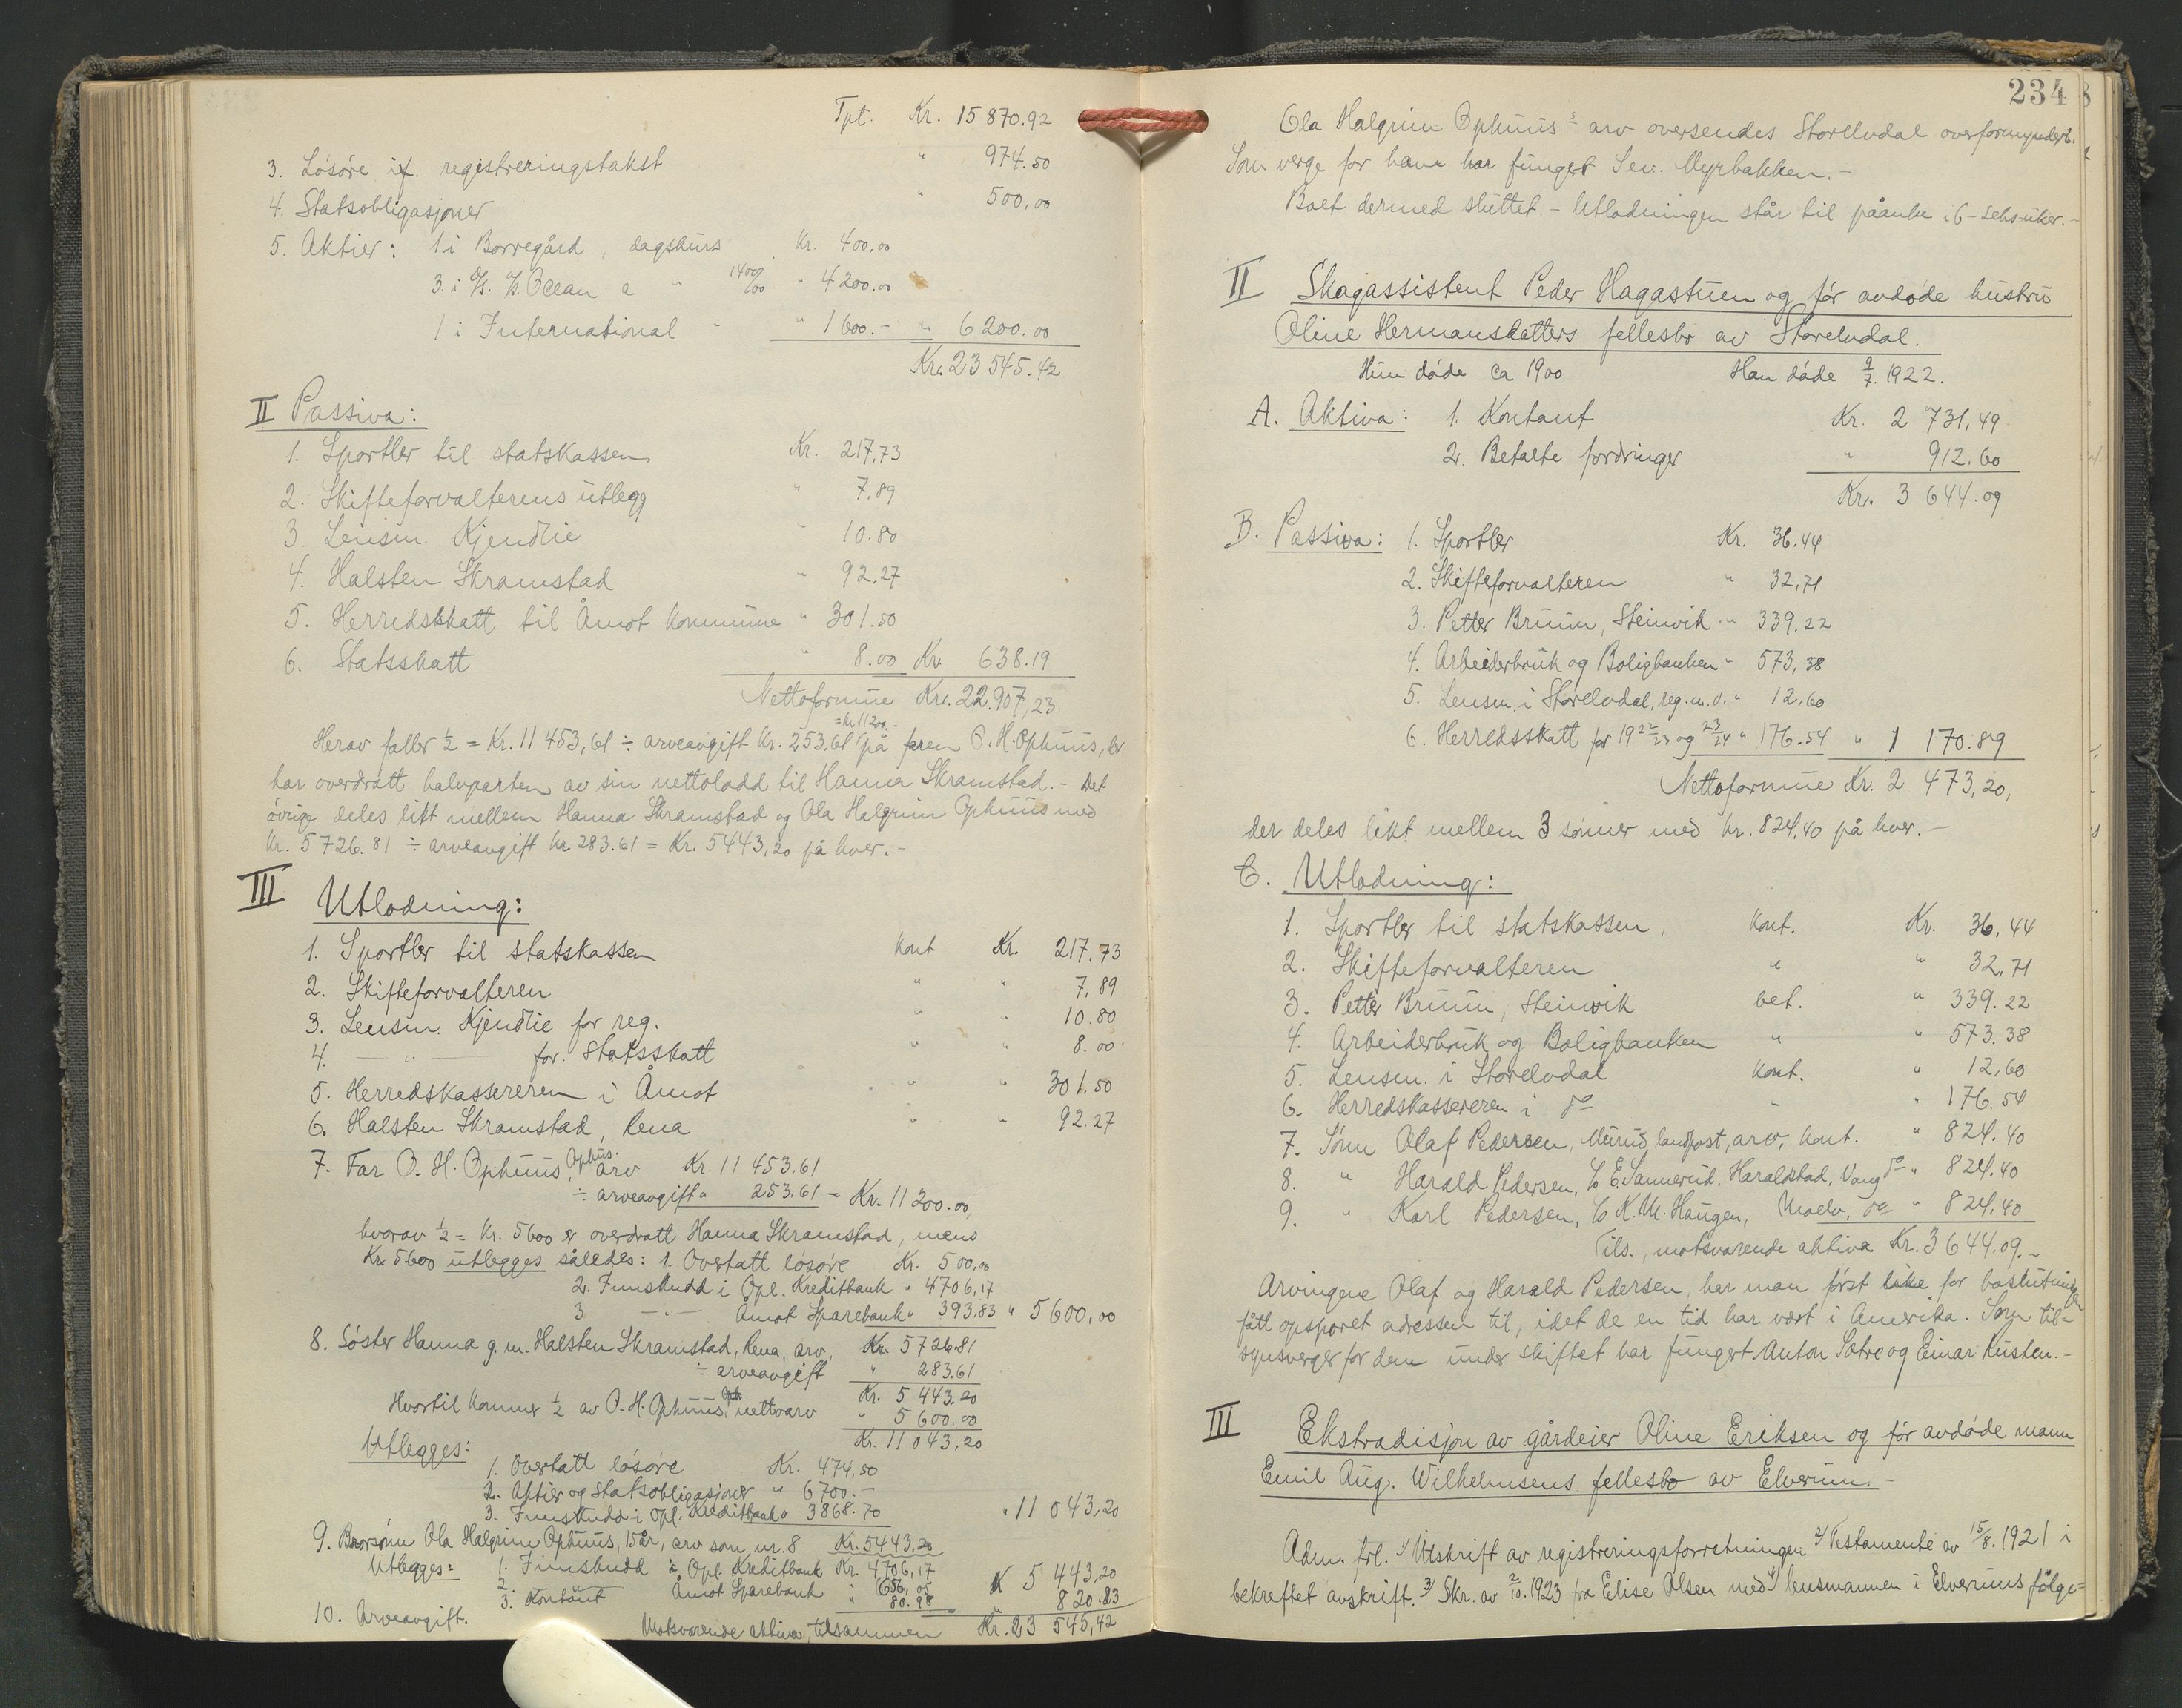 Tpt. Kr. 15 870.92
3. Løsøre if. registreringstakst " 974.50
4. Statsobligasjoner " 500,00
5. Aktier: 1 i Borregård, dagskurs Kr. 400,00
3 i Ocean a " 1400/00 " 4200.00
1 i International " " 1600.- " 6200.00
Kr. 23 545.42
II Passiva:
1. Sportler til statskassen Kr. 217,73
2. Skifteforvalterens utlegg " 7,89
3. Lensm. Kjendlie " 10.80
4. Halsten Skramstad " 92.27
5. Herredskatt til Åmot kommune " 301.50
6. Statsskatt " 8.00 Kr. 638.19
Nettoformue Kr. 22.907,23.
Herav faller ½ = Kr. 11 453,61 ÷ arveavgift kr. 253.61 = kr. 11200.- på faren O. H. Ophuus, der
har overdratt halvparten av sin nettolodd til Hanna Skramstad. - Det
øvrige deles likt mellem Hanna Skramstad og Ola Halgrim Ophuus med
Kr. 5726.81 ÷ arveavgift kr 283.61 = Kr. 5443,20 på hver. -
III Utlodning:
1. Sportler til statskassen kont Kr. 217,73
2. Skifteforvalteren " " 7,89
3. Lensm. Kjendlie for reg. " " 10.80
4. — " — for Statsskatt " " 8.00
5. Herredskassereren i Åmot " " 301.50
6. Halsten Skramstad, Rena " " 92.27
7. Far O. H. Ophuus, Ophus. arv Kr. 11 453.61
÷ arveavgift " 253.61 = Kr. 11 200.00,
hvorav ½ = Kr. 5600 er overdratt Hanna Skramstad, mens
Kr. 5600 utlegges således: 1. Overtatt løsøre Kr. 500,00
2. Innskudd i Opl. Kreditbank " 4706,17
3 — " — Åmot Sparebank " 393.83 " 5600,00
8. Søster Hanna g. m. Halsten Skramstad, Rena, arv, Kr. 5726.81
÷ arveavgift " 283.61
Kr. 5 443,20
Hvortil kommer ½ av O. H. Ophuus, Oph. nettoarv " 5 600.00
Kr. 11 043,20
Utlegges:
1. Overtatt løsøre Kr. 474,50
2. Aktier og Statsobligasjoner " 6700.-
3. Innskudd i Opl. Kreditbank " 3868.70 " 11 043,20
9. Brorsønn Ola Halgrim Ophuus, 15 år, arv som nr. 8 Kr. 5443,20
Utlegges: 1. Innskudd i Opl. Kreditbank Kr. 4706,17
2. Åmot Sparebank " 656,05 K 5 443,20
3. Kontant " 80.98
10. Arveavgift. " 820.83
Motsvarende aktiva, tilsammen Kr. 23 545,42
234
Ola Halgrim Ophuus' arv oversendes Storelvdal overformynderi.
Som verge for ham har fungert Sev. Myrbakken. -
Boet dermed sluttet. - Utlodningen står til påanke i 6 - seks uker. -
II Skogassistent Peder Hagastuen og før avdøde hustru
Oline Hermansdatters fellesbo av Storelvdal.
Hun døde ca 1900 Han døde 9/7. 1922.
A. Aktiva: 1. Kontant Kr. 2 731,49
2. Betalte fordringer " 912.60
Kr. 3 644.09
B. Passiva: 1. Sportler Kr. 36.44
2. Skifteforvalteren " 32,71
3. Petter Bruun, Steinvik " 339.22
4. Arbeiderbruk og Boligbanken " 573,38
5. Lensm. i Storelvdal, reg. m. v. " 12,60
6. Herredsskatt for 19 22/23 og 23/24 " 176.54 " 1 170.89
Nettoformue Kr. 2 473,20,
der deles likt mellem 3 sønner med kr. 824,40 på hver. -
C. Utlodning:
1. Sportler til statskassen, kont. Kr. 36,44
2. Skifteforvalteren " " 32,71
3. Petter Bruun, Steinvik bet. " 339.22
4. Arbeiderbruk og Boligbanken " " 573.38
5. Lensm. i Storelvdal kont. " 12,60
6. Herredskassereren i do " " 176.54
7. Sønn Olaf Pedersen, landpost, arv, kont. " 824.40
8. " Harald Pedersen, E. Sannerud, Haraldstad, Vang do " 824.40
9. " Karl Pedersen, K. M. Haugen, Moelv, do " 824,40
Tils., motsvarende aktiva Kr. 3 644.09. -
Arvingene Olaf og Harald Pedersen, har man først like før boslutningen
fått opsporet adressen til, idet de en tid har vært i Amerika. Som til-
synsverger for dem under skiftet har fungert Anton Sætre og Einar Kusten. -
III Ekstradisjon av gårdeier Oline Eriksen og før avdøde mann
Emil Aug. Wilhelmsens fellesbo av Elverum. -
Adm. frl. 1/ Utskrift av registreringsforretningen 2/ Testamente av 15/8. 1921 i
bekreftet avskrift. 3/ Skr. av 2/10. 1923 fra Elise Olsen med 4/ lensmannen i Elverums følge=